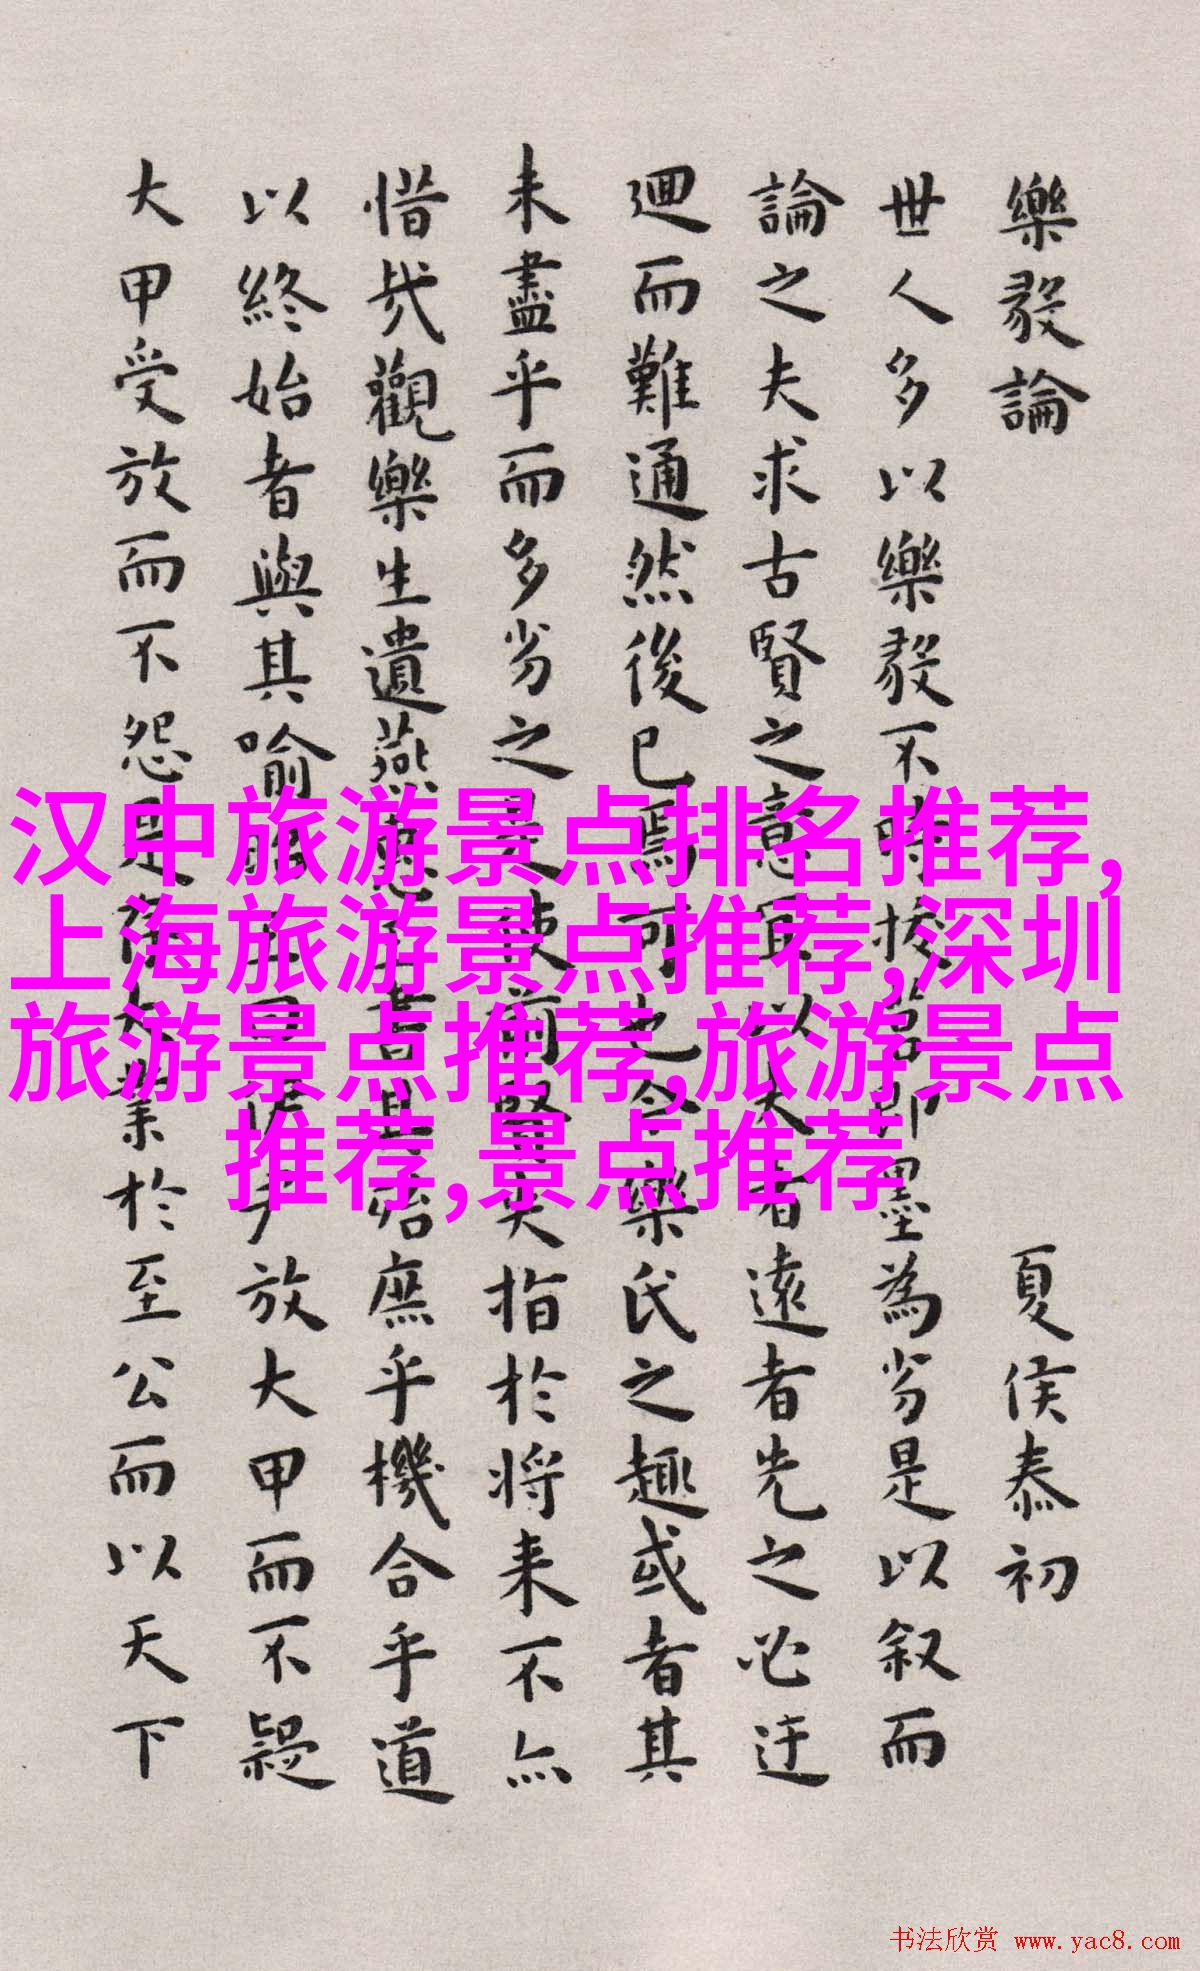 樂毅論 夏侯泰初
世人多以樂毅不時拔莒即墨為劣是以叙而
論之夫求古賢之意宜以大者遠者先之必迂
迴而難通然後已焉可也今樂氏之趣或者其
未盡乎而多劣之是使前賢失指於將来不亦
惜哉觀樂生遺燕惠王書其殆庶乎機合乎道
以終始者與其喻昭王曰伊尹放大甲而不疑
大甲受放而不怨是存大業於至公而以天下
汉中旅游景点排名推荐,
上海旅游景点推荐,深圳
旅游景点推荐,旅游景点
推荐,景点推荐
书法欣赏 www.yac8.com